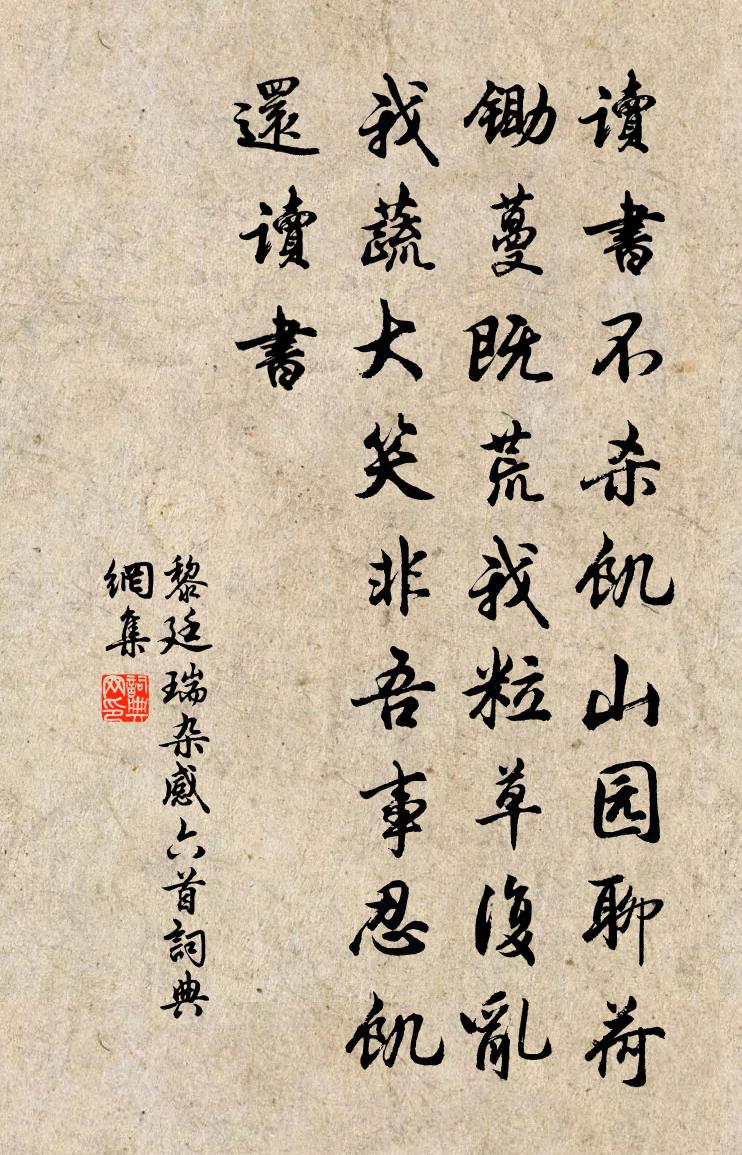 讀書不杀飢山园聊荷
鋤蔓既荒我粒草復亂
我蔬大笑非吾事忍飢
還讀書
黎廷瑞杂感六首詞典
網集
詞典
网印